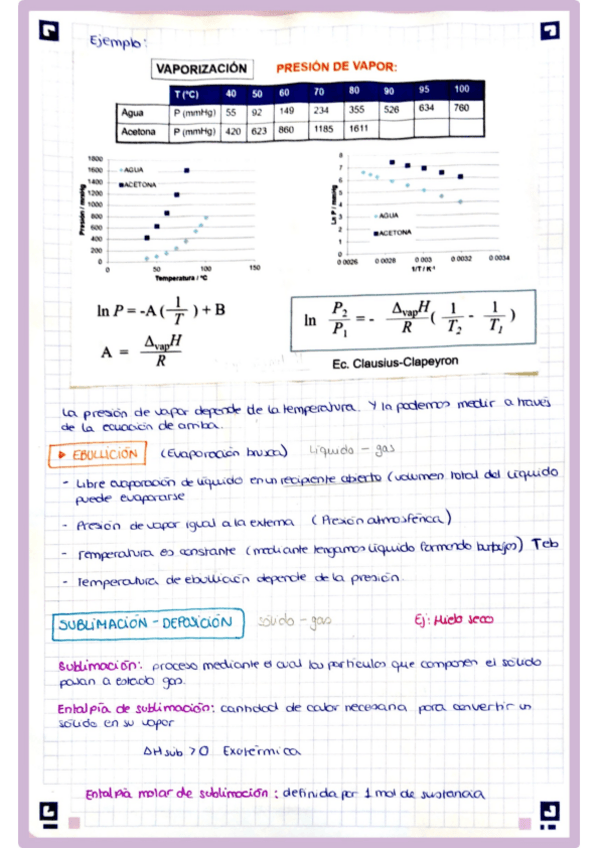 Ejemplo:
VAPORIZACIÓN PRESIÓN DE VAPOR:
T (°C) 40 50 60 70 80 90 95 100
Agua P (mmHg) 55 92 149 234 355 526 634 760
Acetona P (mmHg) 420 623 860 1185 1611
1800
1600
1400
1200
1000
800
600
400
200
0
Presión / mmHg
AGUA
ACETONA
0 50 100 150
Temperatura / °C
8
7
6
5
4
3
2
1
0
Ln P / mmHg
AGUA
ACETONA
0 0026 0 0028 0 003 0 0032 0 0034
1/T / K⁻¹
ln P = -A ( 1/T ) + B
A = ΔvapH / R
ln P₂/P₁ = - ΔvapH/R ( 1/T₂ - 1/T₁ )
Ec. Clausius-Clapeyron
La presión de vapor depende de la temperatura. Y la podemos medir a través
de la ecuación de arriba.
▶ EBULLICIÓN (Evaporación brusca) Líquido - gas
- Libre evaporación de líquido en un recipiente abierto (volumen total del líquido
puede evaporarse
- Presión de vapor igual a la externa (Presión atmosférica)
- Temperatura es constante (mediante tengamos líquido formando burbujas) Teb
- Temperatura de ebullición depende de la presión.
SUBLIMACIÓN - DEPOSICIÓN sólido - gas Ej: Hielo seco
Sublimación: proceso mediante el cual las partículas que componen el sólido
pasan a estado gas.
Entalpía de sublimación: cantidad de calor necesaria para convertir un
sólido en su vapor
ΔHsub > 0 Exotérmica
Entalpía molar de sublimación: definida por 1 mol de sustancia